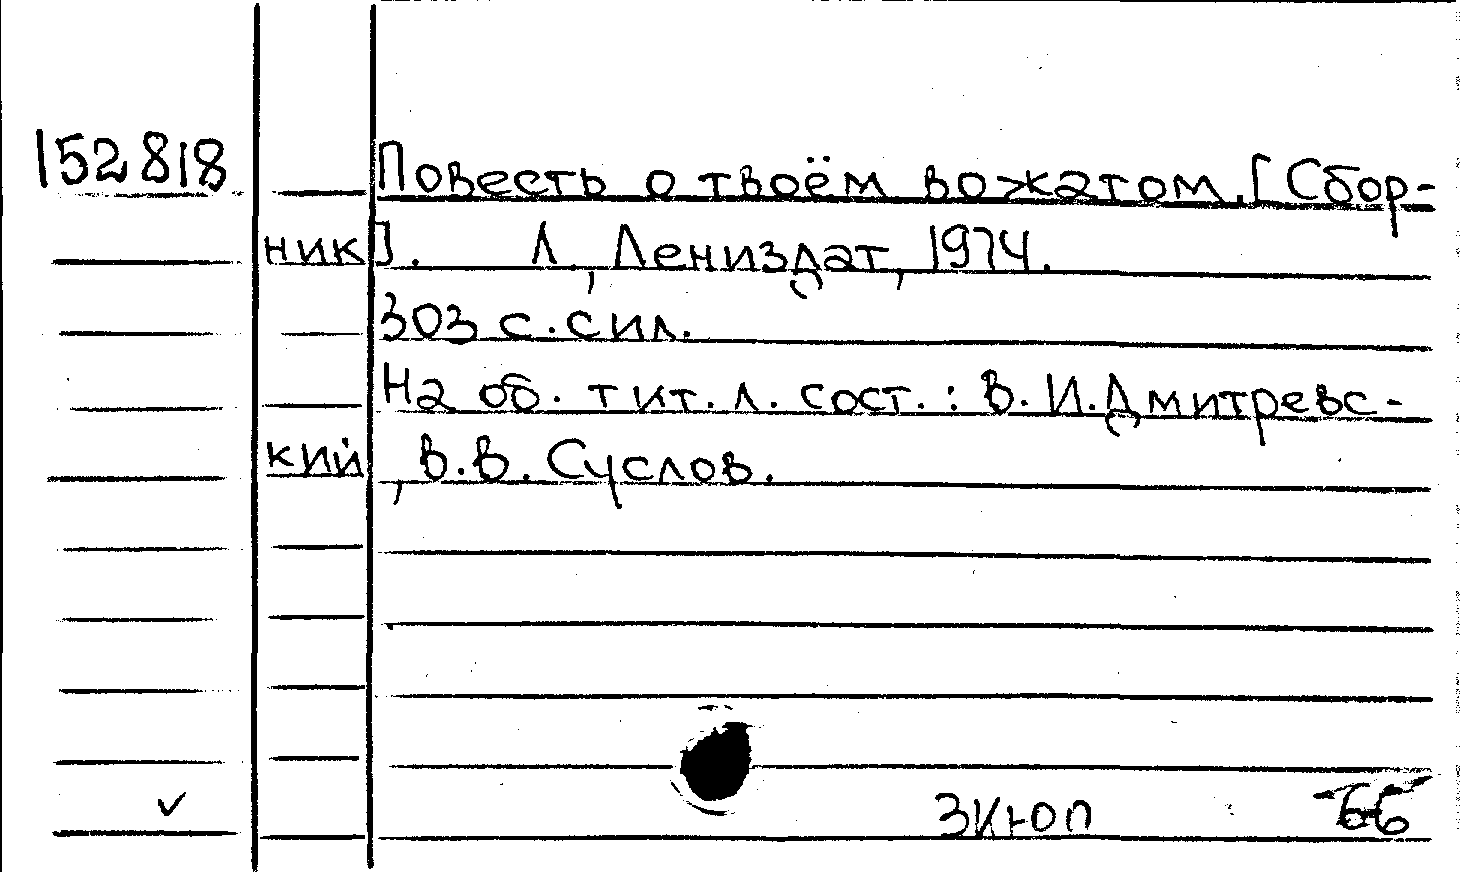 152818 Повесть о твоём вожатом. [Сбор-
ник]. Л., Лениздат, 1974.
303 с. с ил.
На об. тит. л. сост.: В.И. Дмитревс-
кий, В.В. Суслов.